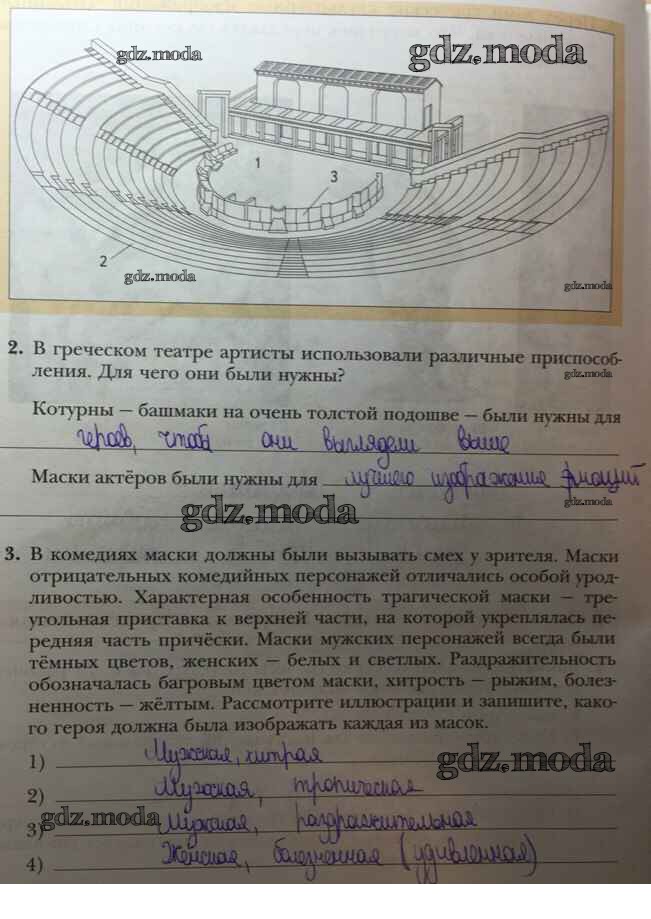 gdz.moda
gdz.moda
1
3
2
gdz.moda
gdz.moda
2. В греческом театре артисты использовали различные приспособ-
ления. Для чего они были нужны?
gdz.moda
Котурны – башмаки на очень толстой подошве – были нужны для
героев, чтобы они выглядели выше
Маски актёров были нужны для лучшего изображения эмоций
gdz.moda
gdz.moda
3. В комедиях маски должны были вызывать смех у зрителя. Маски
отрицательных комедийных персонажей отличались особой урод-
ливостью. Характерная особенность трагической маски – тре-
угольная приставка к верхней части, на которой укреплялась пе-
редняя часть причёски. Маски мужских персонажей всегда были
тёмных цветов, женских – белых и светлых. Раздражительность
обозначалась багровым цветом маски, хитрость – рыжим, болез-
ненность – жёлтым. Рассмотрите иллюстрации и запишите, како-
го героя должна была изображать каждая из масок.
1) Мужская, хитрая
gdz.moda
2) Мужская,
gdz.moda
3) Мужская, раздражительная
4) Женская, болезненная (удивленная)